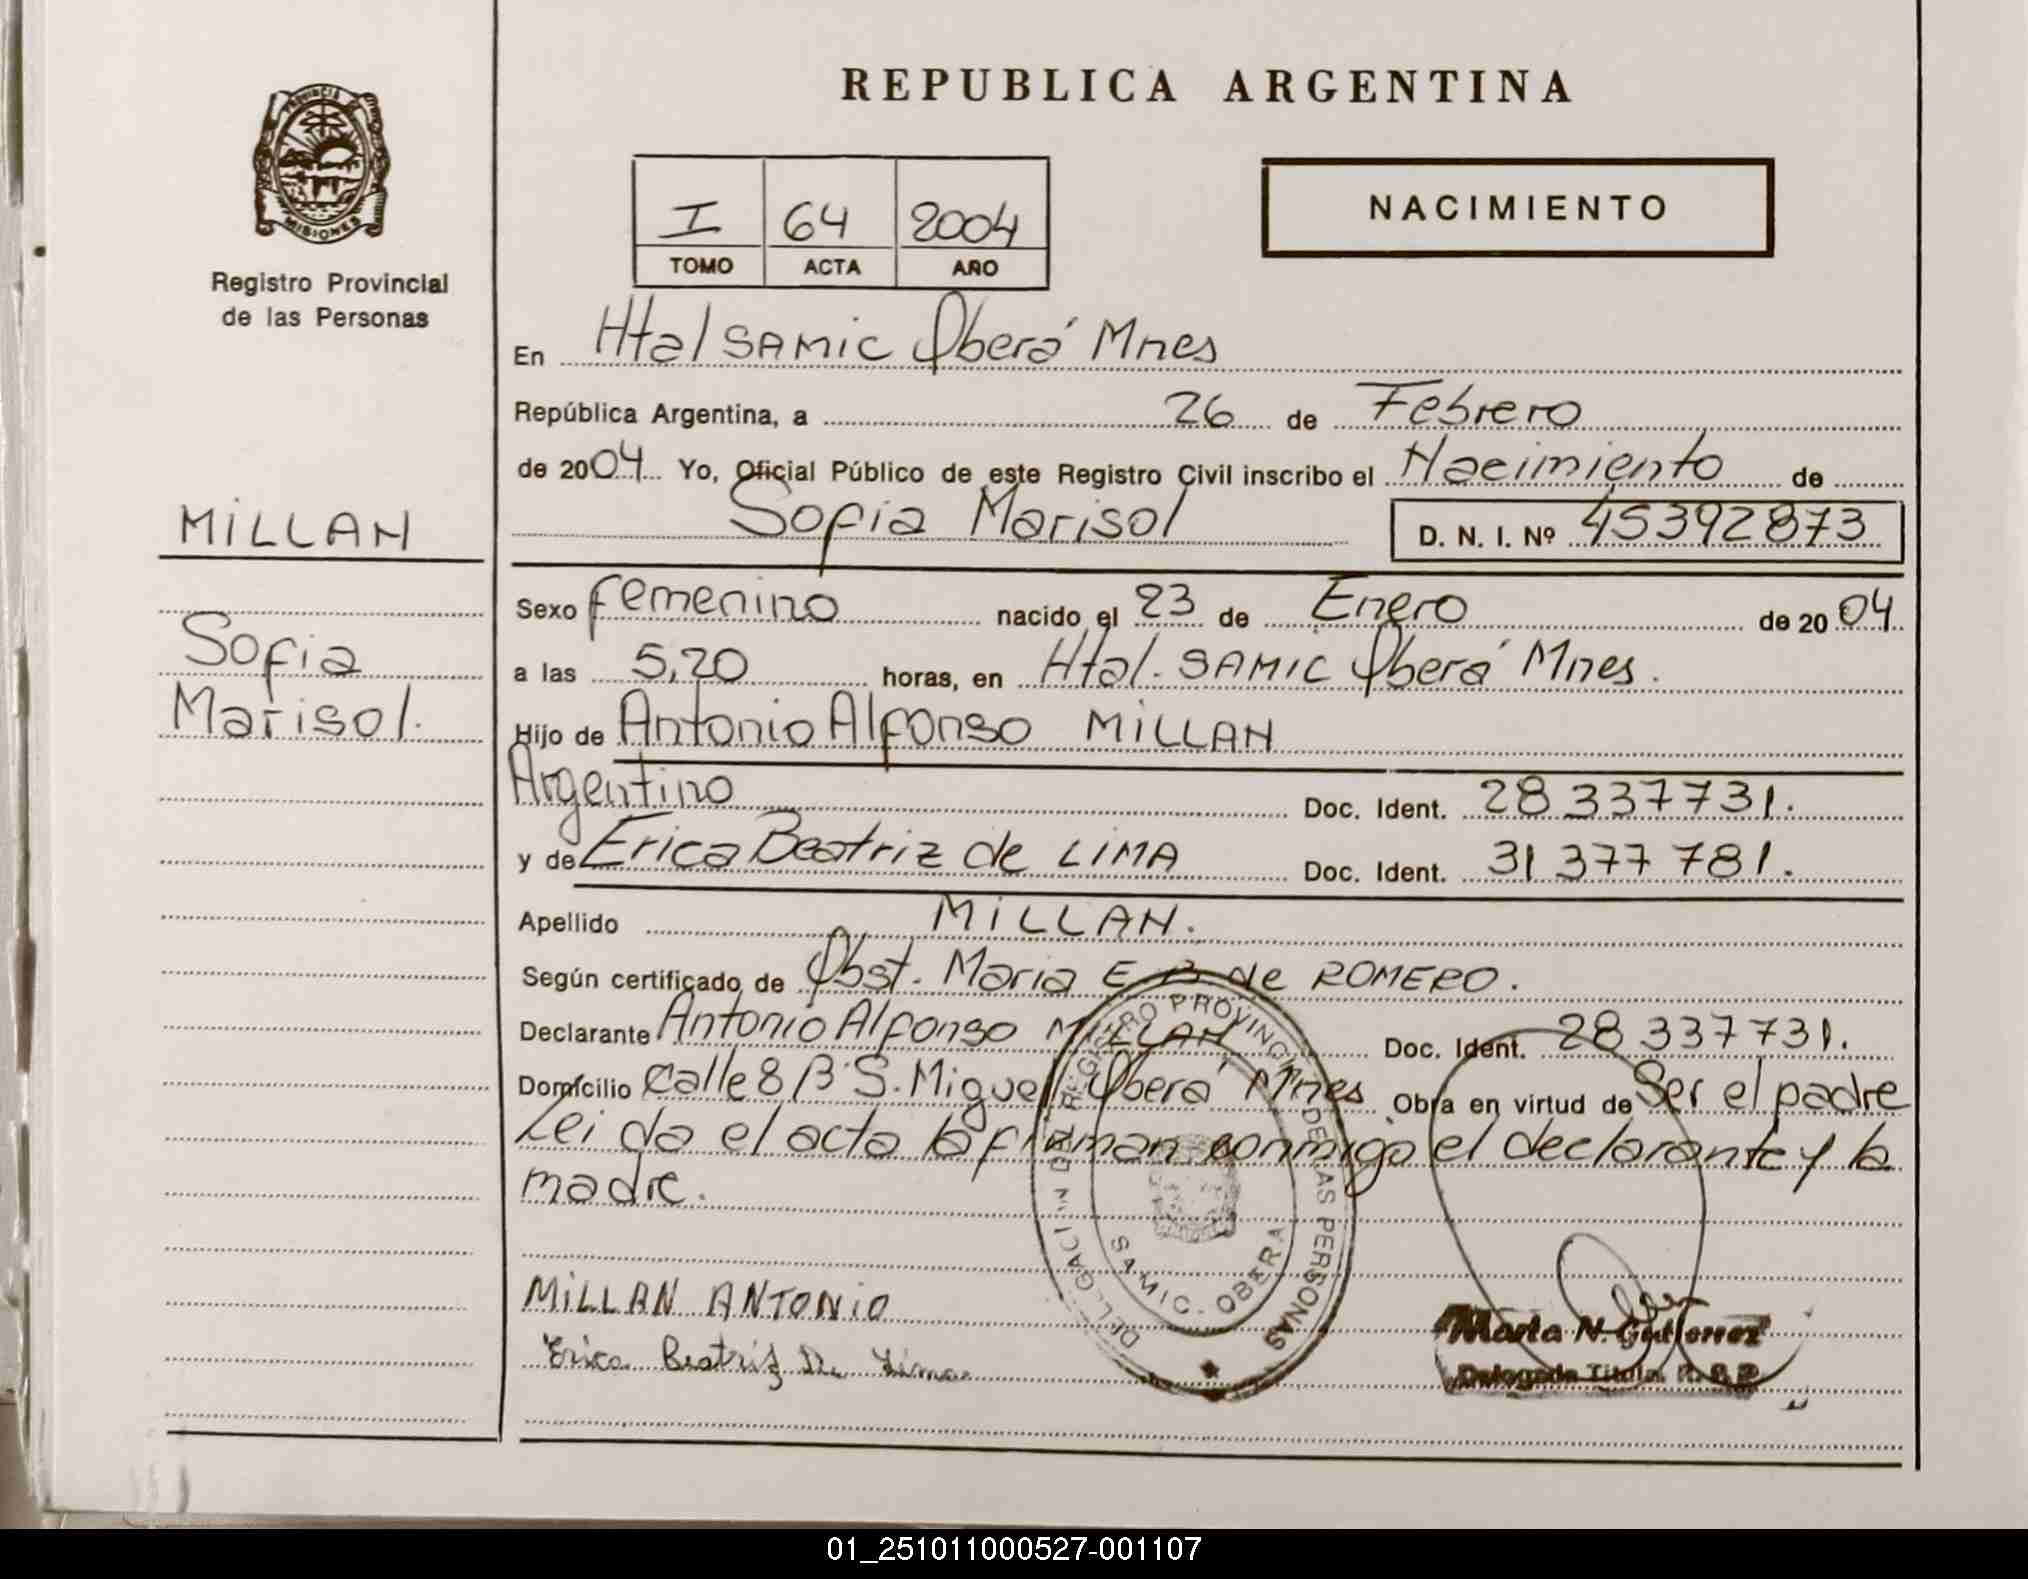 PROVINCIA DE
MISIONES
Registro Provincial
de las Personas
MILLAN
Sofia
Marisol.
REPUBLICA ARGENTINA
I 64 2004
TOMO ACTA AÑO
NACIMIENTO
En Htal SAMIC Oberá Mnes
República Argentina, a 26 de Febrero
de 2004 Yo, Oficial Público de este Registro Civil inscribo el Nacimiento de
Sofia Marisol D. N. I. Nº 45392873
Sexo femenino nacido el 23 de Enero de 2004
a las 5,20 horas, en Htal. SAMIC Oberá Mnes.
Hijo de Antonio Alfonso MILLAN
Argentino Doc. Ident. 28 337731.
y de Erica Beatriz de LIMA Doc. Ident. 31 377 781.
Apellido MILLAN.
Según certificado de Obst. Maria E B de ROMERO.
Declarante Antonio Alfonso MILLAN Doc. Ident. 28 337731.
Domicilio Calle 8 Bº S. Miguel Oberá Mnes Obra en virtud de Ser el padre
Lei da el acta la firman conmigo el declarante y la
madre.
MILLAN ANTONIO
Erica Beatriz De Lima
DELEGACION DEL REGISTRO PROVINCIAL DE LAS PERSONAS
SAMIC - OBERA
Marta N. Gutierrez
Delegada Titular R.P.P.
01_251011000527-001107